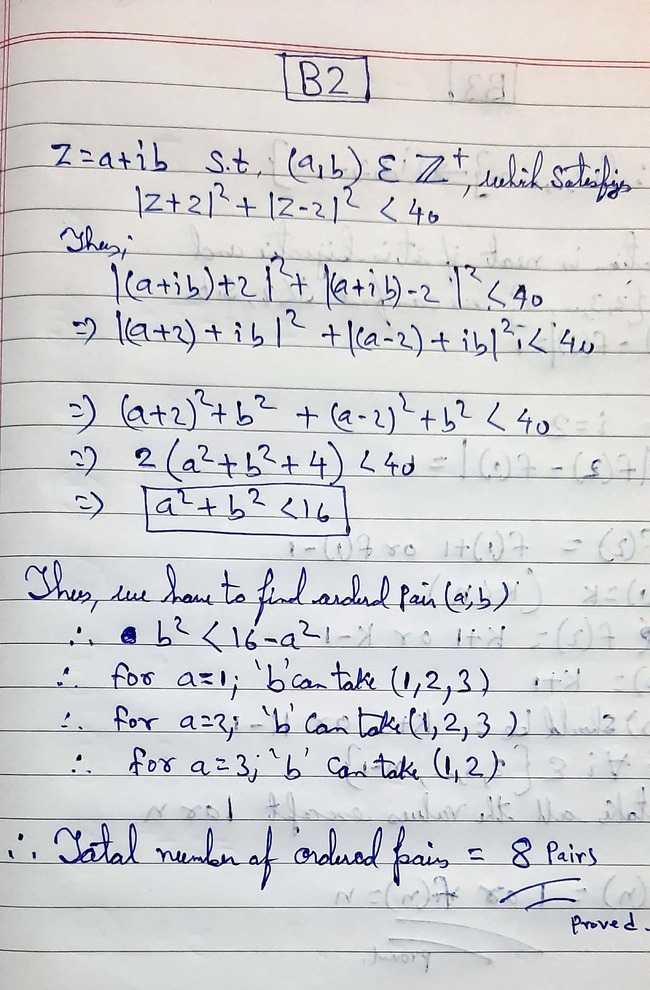 B2
Z=a+ib s.t. (a,b) ε Z⁺, which satisfys
|Z+2|² + |Z-2|² < 40
Thus;
|(a+ib)+2|² + |(a+ib)-2|² < 40
⇒ |(a+2)+ib|² + |(a-2)+ib|² < 40
⇒ (a+2)²+b² + (a-2)²+b² < 40
⇒ 2(a²+b²+4) < 40
⇒ a²+b² < 16
Thus, we have to find ordered pair (a,b)
∴ b² < 16-a²
∴ for a=1; 'b' can take (1,2,3)
∴ for a=2; 'b' can take (1,2,3)
∴ for a=3; 'b' can take (1,2)
∴ Total number of ordered pairs = 8 Pairs
proved.